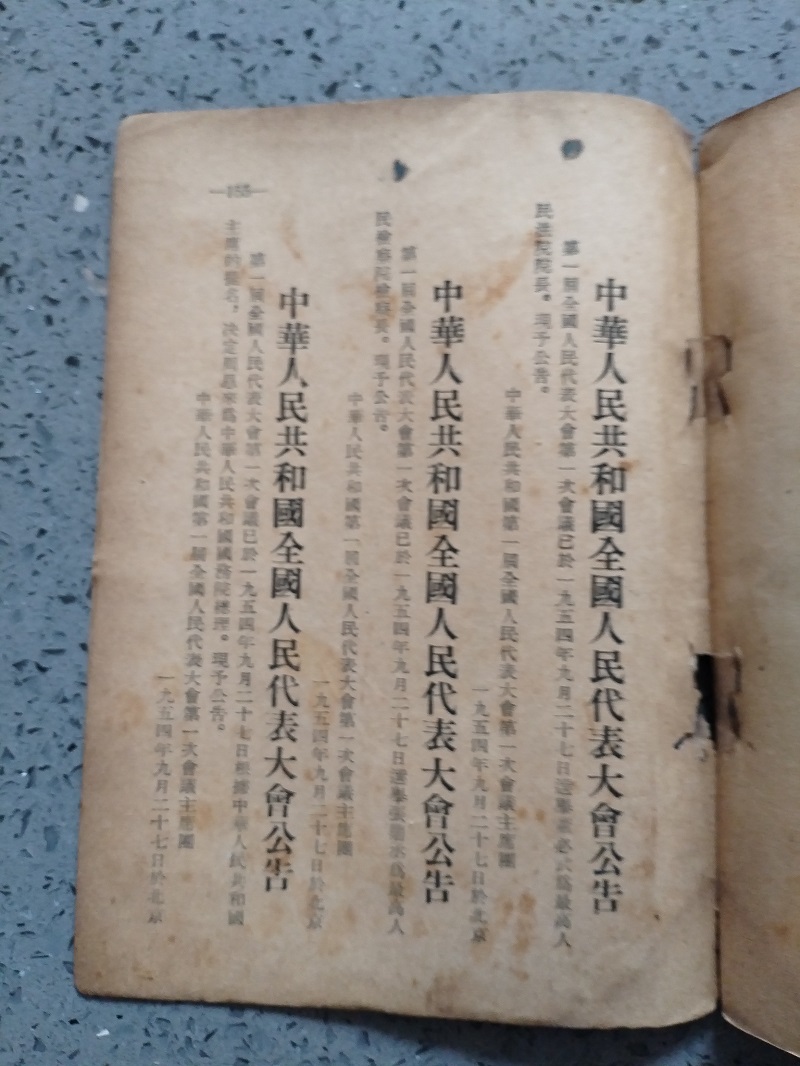 中華人民共和國全國人民代表大會公告
第一屆全國人民代表大會第一次會議已於一九五四年九月二十七日選舉董必武爲最高人
民法院院長。現予公告。
中華人民共和國第一屆全國人民代表大會第一次會議主席團
一九五四年九月二十七日於北京
中華人民共和國全國人民代表大會公告
第一屆全國人民代表大會第一次會議已於一九五四年九月二十七日選舉張鼎丞爲最高人
民檢察院檢察長。現予公告。
中華人民共和國第一屆全國人民代表大會第一次會議主席團
一九五四年九月二十七日於北京
中華人民共和國全國人民代表大會公告
第一屆全國人民代表大會第一次會議已於一九五四年九月二十七日根據中華人民共和國
主席的提名，決定周恩來爲中華人民共和國國務院總理。現予公告。
中華人民共和國第一屆全國人民代表大會第一次會議主席團
一九五四年九月二十七日於北京